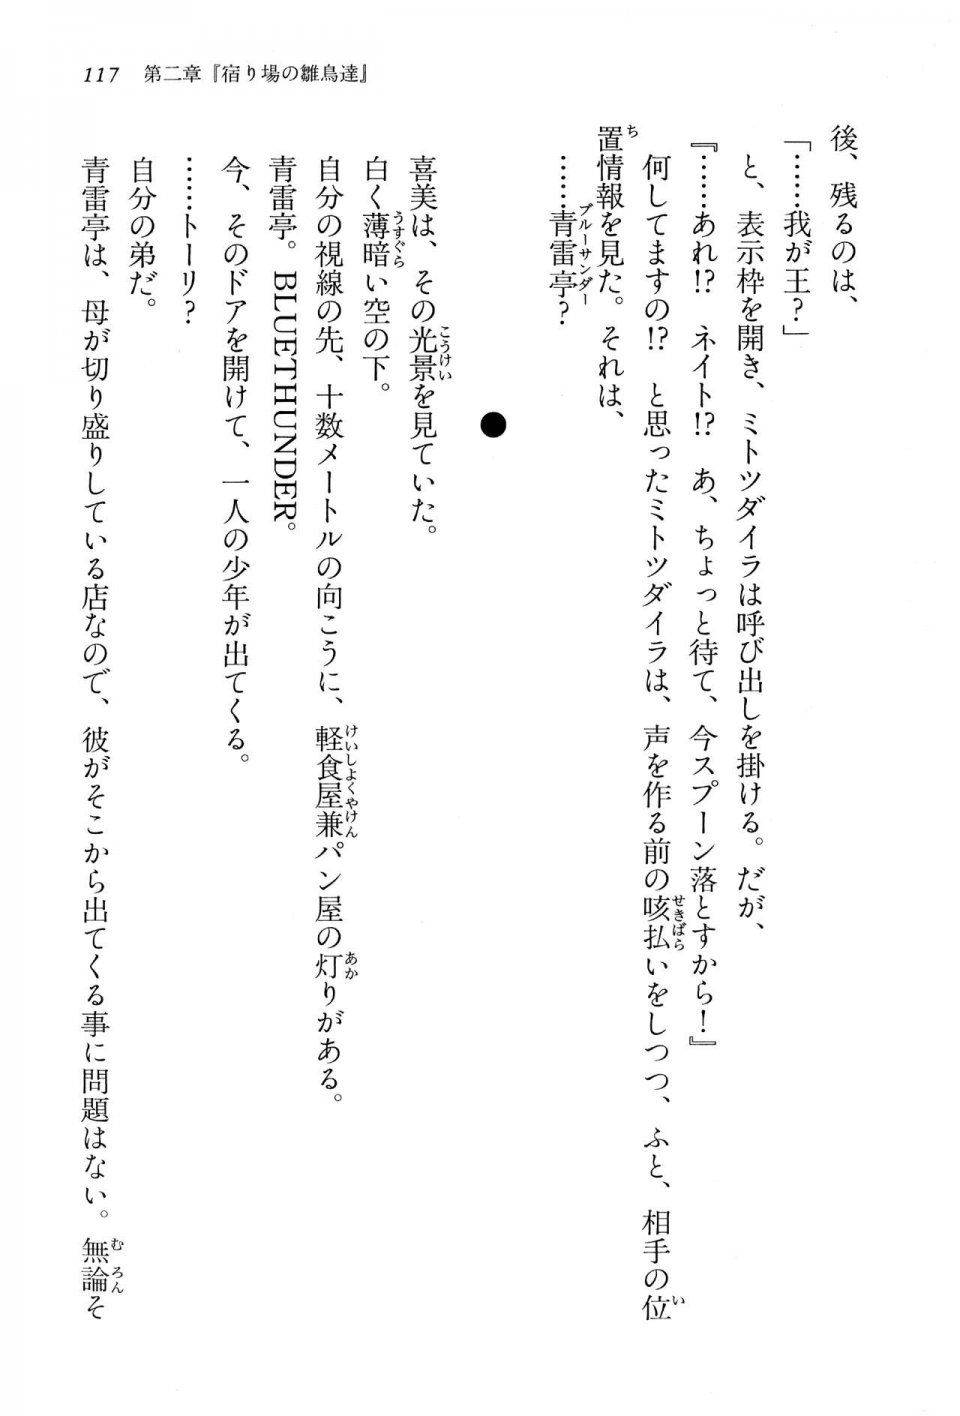 117　第二章『宿り場の雛鳥達』
後、残るのは、
「……我が王？」
と、表示枠を開き、ミトツダイラは呼び出しを掛ける。だが、
『……あれ!?　ネイト!?　あ、ちょっと待て、今スプーン落とすから！』
何してますの!?　と思ったミトツダイラは、声を作る前の咳払いをしつつ、ふと、相手の位
置情報を見た。それは、
……青雷亭？
●
喜美は、その光景を見ていた。
白く薄暗い空の下。
自分の視線の先、十数メートルの向こうに、軽食屋兼パン屋の灯りがある。
青雷亭。BLUETHUNDER。
今、そのドアを開けて、一人の少年が出てくる。
……トーリ？
自分の弟だ。
青雷亭は、母が切り盛りしている店なので、彼がそこから出てくる事に問題はない。無論そ